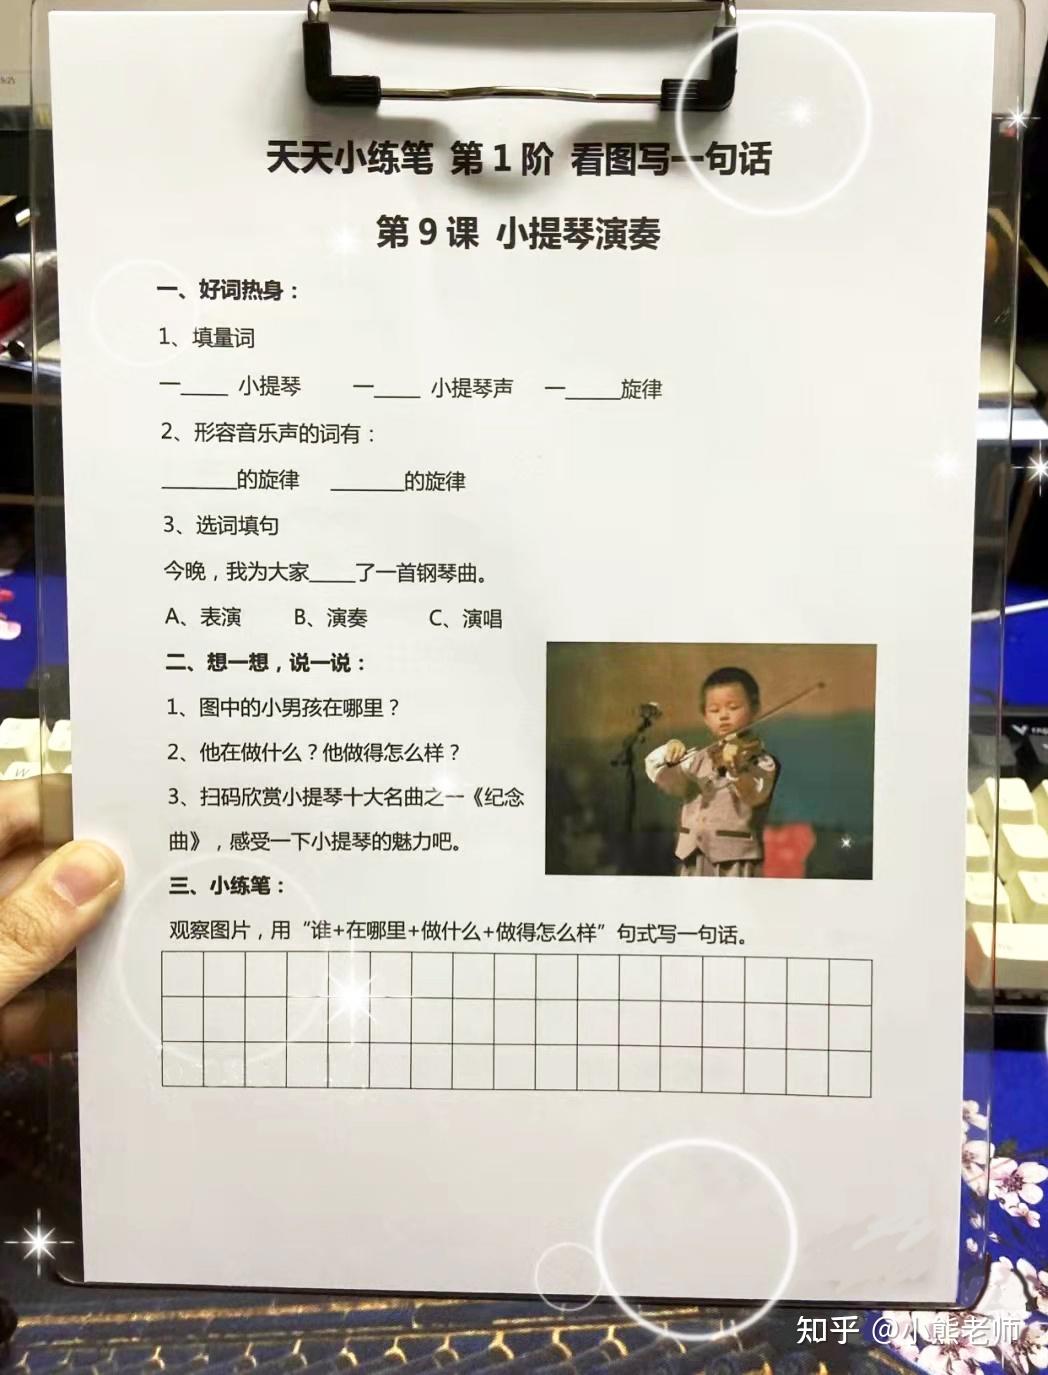 天天小练笔 第1阶 看图写一句话
第9课 小提琴演奏
一、好词热身：
1、填量词
一____ 小提琴 一____ 小提琴声 一_____旋律
2、形容音乐声的词有：
_______的旋律 _______的旋律
3、选词填句
今晚，我为大家____了一首钢琴曲。
A、表演 B、演奏 C、演唱
二、想一想，说一说：
1、图中的小男孩在哪里？
2、他在做什么？他做得怎么样？
3、扫码欣赏小提琴十大名曲之一《纪念
曲》，感受一下小提琴的魅力吧。
三、小练笔：
观察图片，用“谁+在哪里+做什么+做得怎么样”句式写一句话。
知乎 @小熊老师